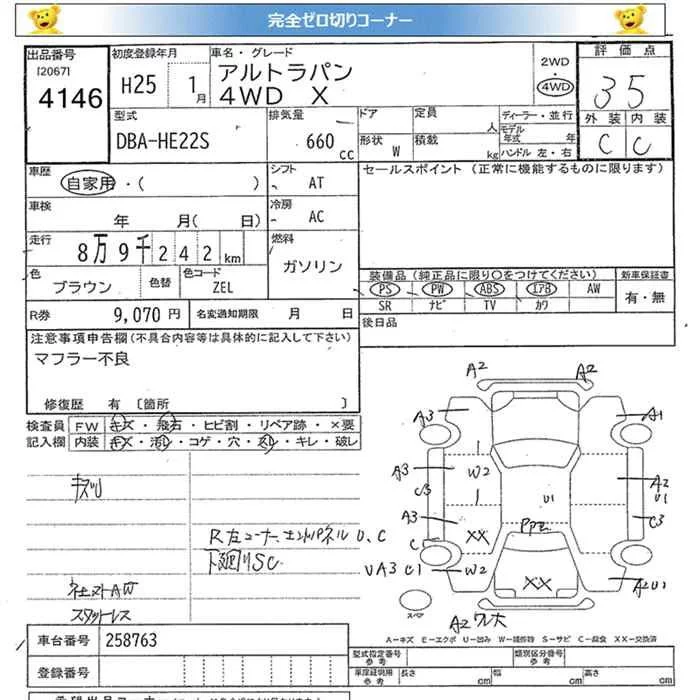 完全ゼロ切りコーナー
出品番号
[2067]
4146
初度登録年月
H25 1月
車名・グレード
アルトラパン
4WD X
2WD
4WD
評価点
35
外装 内装
C C
型式
DBA-HE22S
排気量
660 cc
ドア
形状 W
定員
人
積載
kg
ディーラー・並行
モデル年式 年
ハンドル 左・右
車歴
自家用・( )
シフト
- AT
セールスポイント (正常に機能するものに限ります)
車検
年 月( 日)
冷房
- AC
走行
8万9千242km
燃料
ガソリン
色
ブラウン
色替
色コード
ZEL
装備品(純正品に限り○をつけてください)
PS PW ABS エアB AW
SR ナビ TV カワ
新車保証書
有・無
R券 9,070 円
名変通知期限 月 日
後日品
注意事項申告欄(不具合内容等は具体的に記入して下さい)
マフラー不良
修復歴 有 [箇所 ]
検査員記入欄
FW キズ・飛石・ヒビ割・リペア跡・×要
内装 キズ・汚レ・コゲ・穴・スレ・キレ・破レ
キズリ
R左コーナー、エンドパネル U、C
下廻りSC
社外AW
スタットレス
A2 A2
A3 A1
A3 W2 A2
C3 U1 U1
A3 C3
XX
C
UA3 C1 W2
XX
A2U1
スペア
A2 ワレ大
A-キズ E-エクボ U-凹み W-補修跡 S-サビ C-腐食 XX-交換済
車台番号 258763
登録番号
型式指定番号 参考
類別区分番号 参考
車庫証明用 参考
長さ cm
幅 cm
高さ cm